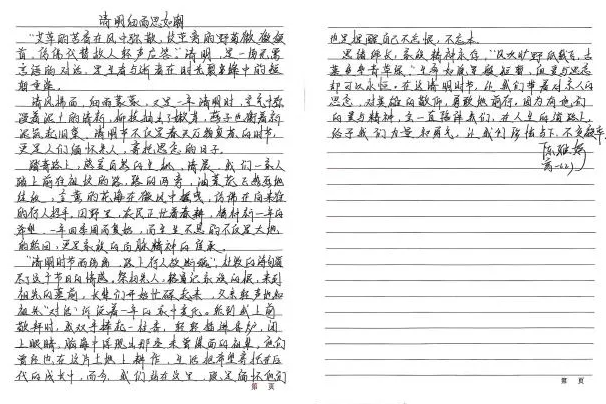 清明细雨思如潮
"艾草的苦香在风中弥散,坟茔旁的野菊微微颔
首,仿佛代替故人轻声应答。"清明,是一场无需
言语的对话,是生者与逝者在时光裂缝中的短
暂重逢。
清风拂面,细雨蒙蒙,又是一年清明时,空气中弥
漫着泥土的清新,柳枝抽出了嫩芽,燕子也衔着新
泥筑起旧巢,清明节不仅是春天万物复苏的时节,
更是人们缅怀先人、寄托思念的日子。
踏青路上,感受自然的生机,清晨,我们一家人
踏上前往祖坟的路,路的两旁,油菜花
绽放,金黄的花海在微风中摇曳,仿佛在向来往
的行人招手,田野里,农民正忙着春耕,播种新一年的
希望,一年四季周而复始,而生生不息的不仅是大地
的轮回,更是家族的血脉精神的传承。
"清明时节雨纷纷,路上行人欲断魂",杜牧的诗句道
尽了这个节日的情感。祭祖先人,铭记家族的根,来到
祖先的墓前,长辈们开始忙碌起来,父亲轻声地和
祖先"对话"诉说着一年的家中变化。轮到我上前
敬拜时,我双手捧起一炷香,轻轻插进香炉,闭
上眼睛,脑海中浮现出那些未曾谋面的祖辈,他们
曾经也在这片土地上耕作、生活把希望寄托在后
代的成长中,而今,我们站在这里,既是缅怀他们
第 页
也是提醒自己不忘根,不忘本。
思绪绵长,家风精神永存,"风吹旷野纸钱飞,古
墓垒垒春草绿。"生命或许是短暂,但爱与思念
却可以永恒。在这清明时节,让我们带着对亲人的
思念,对英雄的敬仰,勇敢地前行,因为有他们
的爱与精神,会一直陪伴我们,在人生的道路上,
给予我们力量和勇气,让我们珍惜当下,不负韶华
陈雅婷
第 页